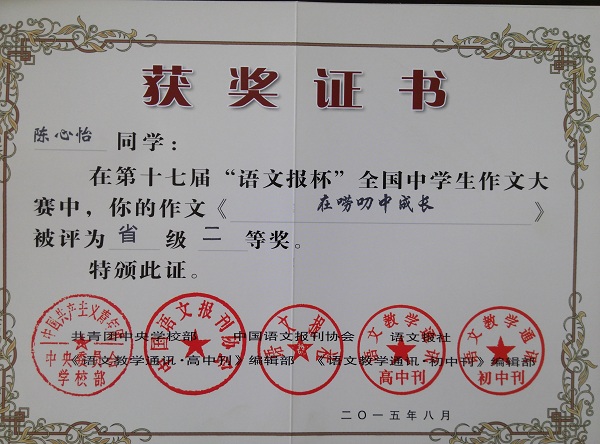 获奖证书
陈心怡 同学：
在第十七届“语文报杯”全国中学生作文大
赛中，你的作文《 在唠叨中成长 》
被评为 省 级 二 等奖。
特颁此证。
共青团中央学校部 中国语文报刊协会 语文报社
《语文教学通讯·高中刊》编辑部 《语文教学通讯·初中刊》编辑部
中国共产主义青年团
中央委员会
学校部
中国语文报刊协会
语文报社
语文教学通讯
高中刊
语文教学通讯
初中刊
二〇一五年八月